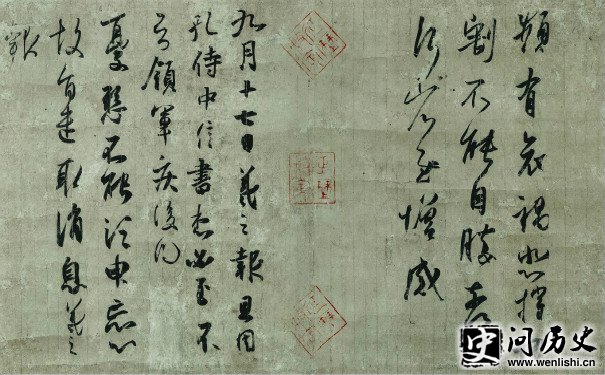 頻有哀禍悲摧
割不能自勝奈
省慰增感
九月十七日羲之報且因
孔侍中信書想必至不
知領軍疾後問
憂懸不能須臾忘心
故旨遣取消息羲之
報
问历史
www.wenlishi.cn